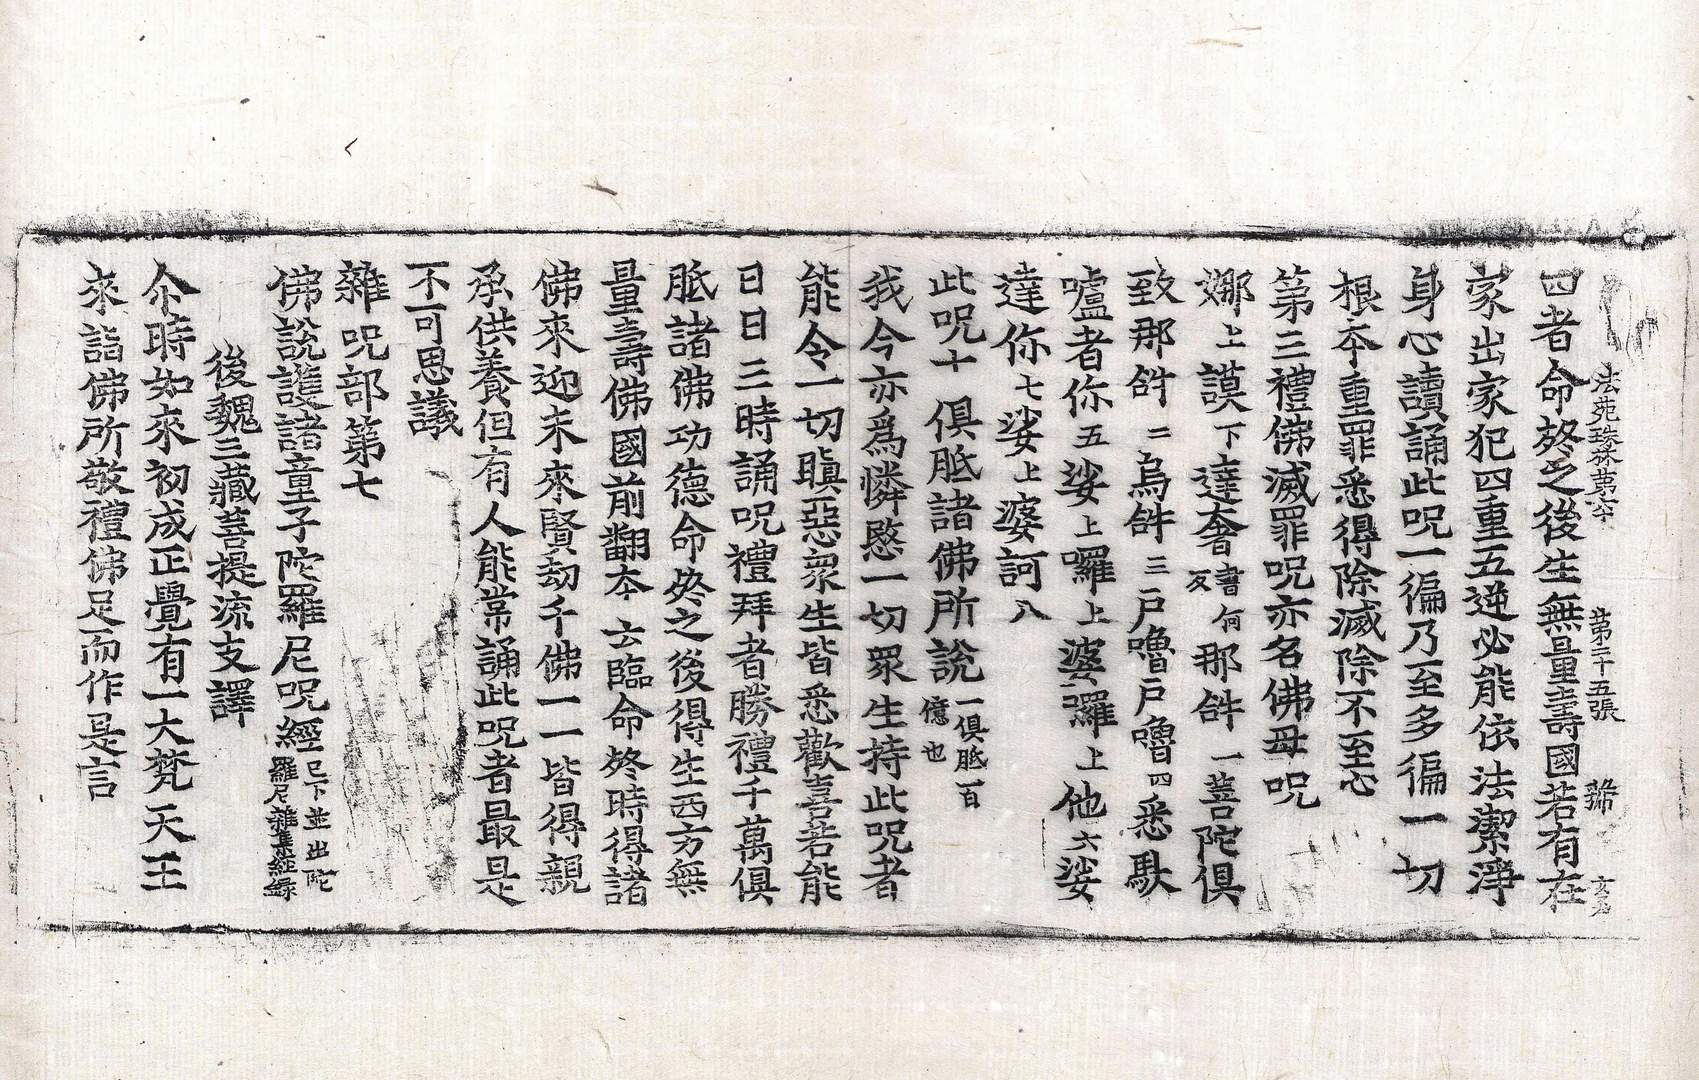 法苑珠林第六十 第二十五張 號
四者命終之後生無量壽國若有在
家出家犯四重五逆必能依法潔淨
身心讀誦此呪一徧乃至多徧一切
根本重罪悉得除滅除不至心
第三禮佛滅罪呪亦名佛母呪
娜上謨下達奢書何反那𫧯一菩陀俱
致那𫧯二烏𫧯三戸嚕戸嚕四悉馱
嚧者你五娑上囉上婆囉上他六娑
達你七娑上婆訶八
此呪十俱胝諸佛所說一俱胝百億也
我今亦爲憐愍一切衆生持此呪者
能令一切瞋惡衆生皆悉歡喜若能
日日三時誦呪禮拜者勝禮千萬俱
胝諸佛功德命終之後得生西方無
量壽佛國前翻本云臨命終時得諸
佛來迎未來賢劫千佛一一皆得親
承供養但有人能常誦此呪者最是
不可思議
雜呪部第七
佛說護諸童子陀羅尼呪經已下並出陀羅尼雜集經錄
後魏三藏菩提流支譯
尒時如來初成正覺有一大梵天王
來詣佛所敬禮佛足而作是言